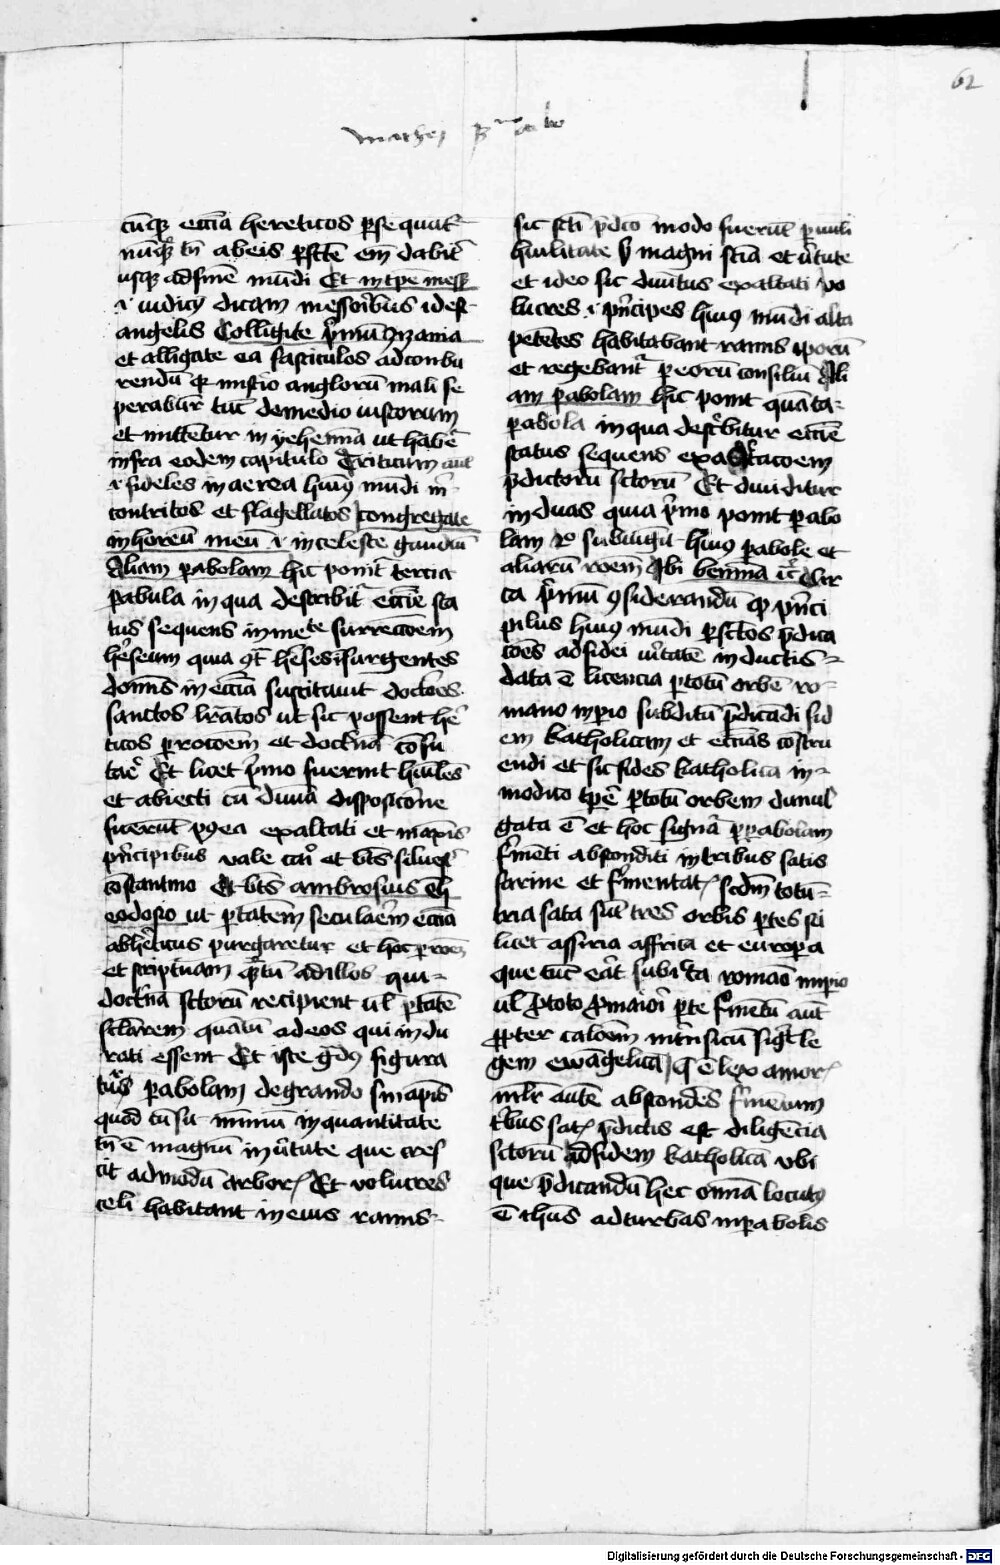 62
mathei
cūq̄ȝ eccīa hereticos persequat᷑
nūqᷓ tn̄ ab eis perfcē em̄dabit᷑
usq̄ȝ ad finē mūdi Et in tp̄e mess̄
.i. iudicij dicam messoribus idest
angelis Colligite p̄mū zizania
et alligate ea fasciculos ad conbu
rendū qꝛ mīstᷓio anglorū mali se
perabūt᷑ tūc de medio iustorum
et mittētur in yehennā ut habet᷑
infra eodem capitulo Triticum aut̄
.i. fideles in aerea huiꝯ mūdi
contritos et flagellatos congregate
in horeū meū .i. in celeste gaudiū
Aliam parabolam hic ponit tercia
parabula in qua describit᷑ eccīe sta
tus sequens inmete surrectōem
hēseum quia ꝯt̄ hēses īsurgentes
domīs in eccīa suscitauit doctōes
sanctos lr̄atos ut sic possent hē
ticos per rōcōem et doctnā cōfu
taē Et licet p̄mo fuerint hūiles
et abiecti cū diuīa disposicōne
fuerūt pꝯea exaltati et magīs
pn̄cipibus vale et bt̄s siluest᷑
cōstantino Et bt̄s ambrosius th̄
eodosio ut ptātem seculaēm eccīa
ab hēticus purgaretur et hoc per rōēȝ
et scripturam qᷓtū ad illos qui
doctnā sctōrū recipient ul̄ ptātē
sclārem quātū ad eos qui indu
rati essent Et iste gdꝰ figura
tūs parabolam de grando sinapis
quod cū sit mīmū in quantitate
tn̄ ē magnū in v̄tute que cres
cit ad modū arboꝝ Et volucres
celi habitant in eius ramis
sic scti p̄dcō modo fuerūt p̄ uuli
hūilitate sȝ magni sciā et v̄tute
et ideo sic diuītus exaltati vo
lucres .i. pn̄cipes huiꝯ mūdi alta
petētes habitabant ramis ip̄orū
et regebant᷑ per eorū consiliū Ali
am parabolam hic ponit quarta
parabola in qua describitur eccīe
status sequens exaltacōem
p̄dictorū sctōrū Et diuiditur
in duas quia p̄mo ponit parabo
lam 2o subiūgit huiꝯ parabole et
aliarū rōem ibi
ca p̄mū ꝯsiderandū qꝙ pn̄ci
pibus huiꝯ mūdi per sctōs p̄dica
cōes ad fidei vītatē inductis
data ē licencia per totū orbē ro
mano inperio subditū p̄dicādi fid
em katholicam et eccīas cōstru
endi et sic fides katholica in
modico tp̄e per totū orbem diuul
gata ē et hoc signat᷑ per parabolam
fermēti absconditi in tribus satis
farine et fermentatꝝ scdm totū
tria sata sūt tres orbis partes sci
licet assiria affrica et europa
que tūc erāt subiecta romāo inpio
ul̄ p̄ toto p̄ maiori parte fermētū aut̄
propter calorem int̄nsicū sigt̄ le
gem ewāgelicā q̄ ē lex amoris
mlr̄ autē abscondēs fermētum
tribus satis p̄dictis est diligēcia
sctōrū ad fidem katholicā vbi
que p̄dicandū hec omīa locutꝯ
ē ih̄us ad turbas in parabolis
Digitalisierung gefördert durch die Deutsche Forschungsgemeinschaft - DFG